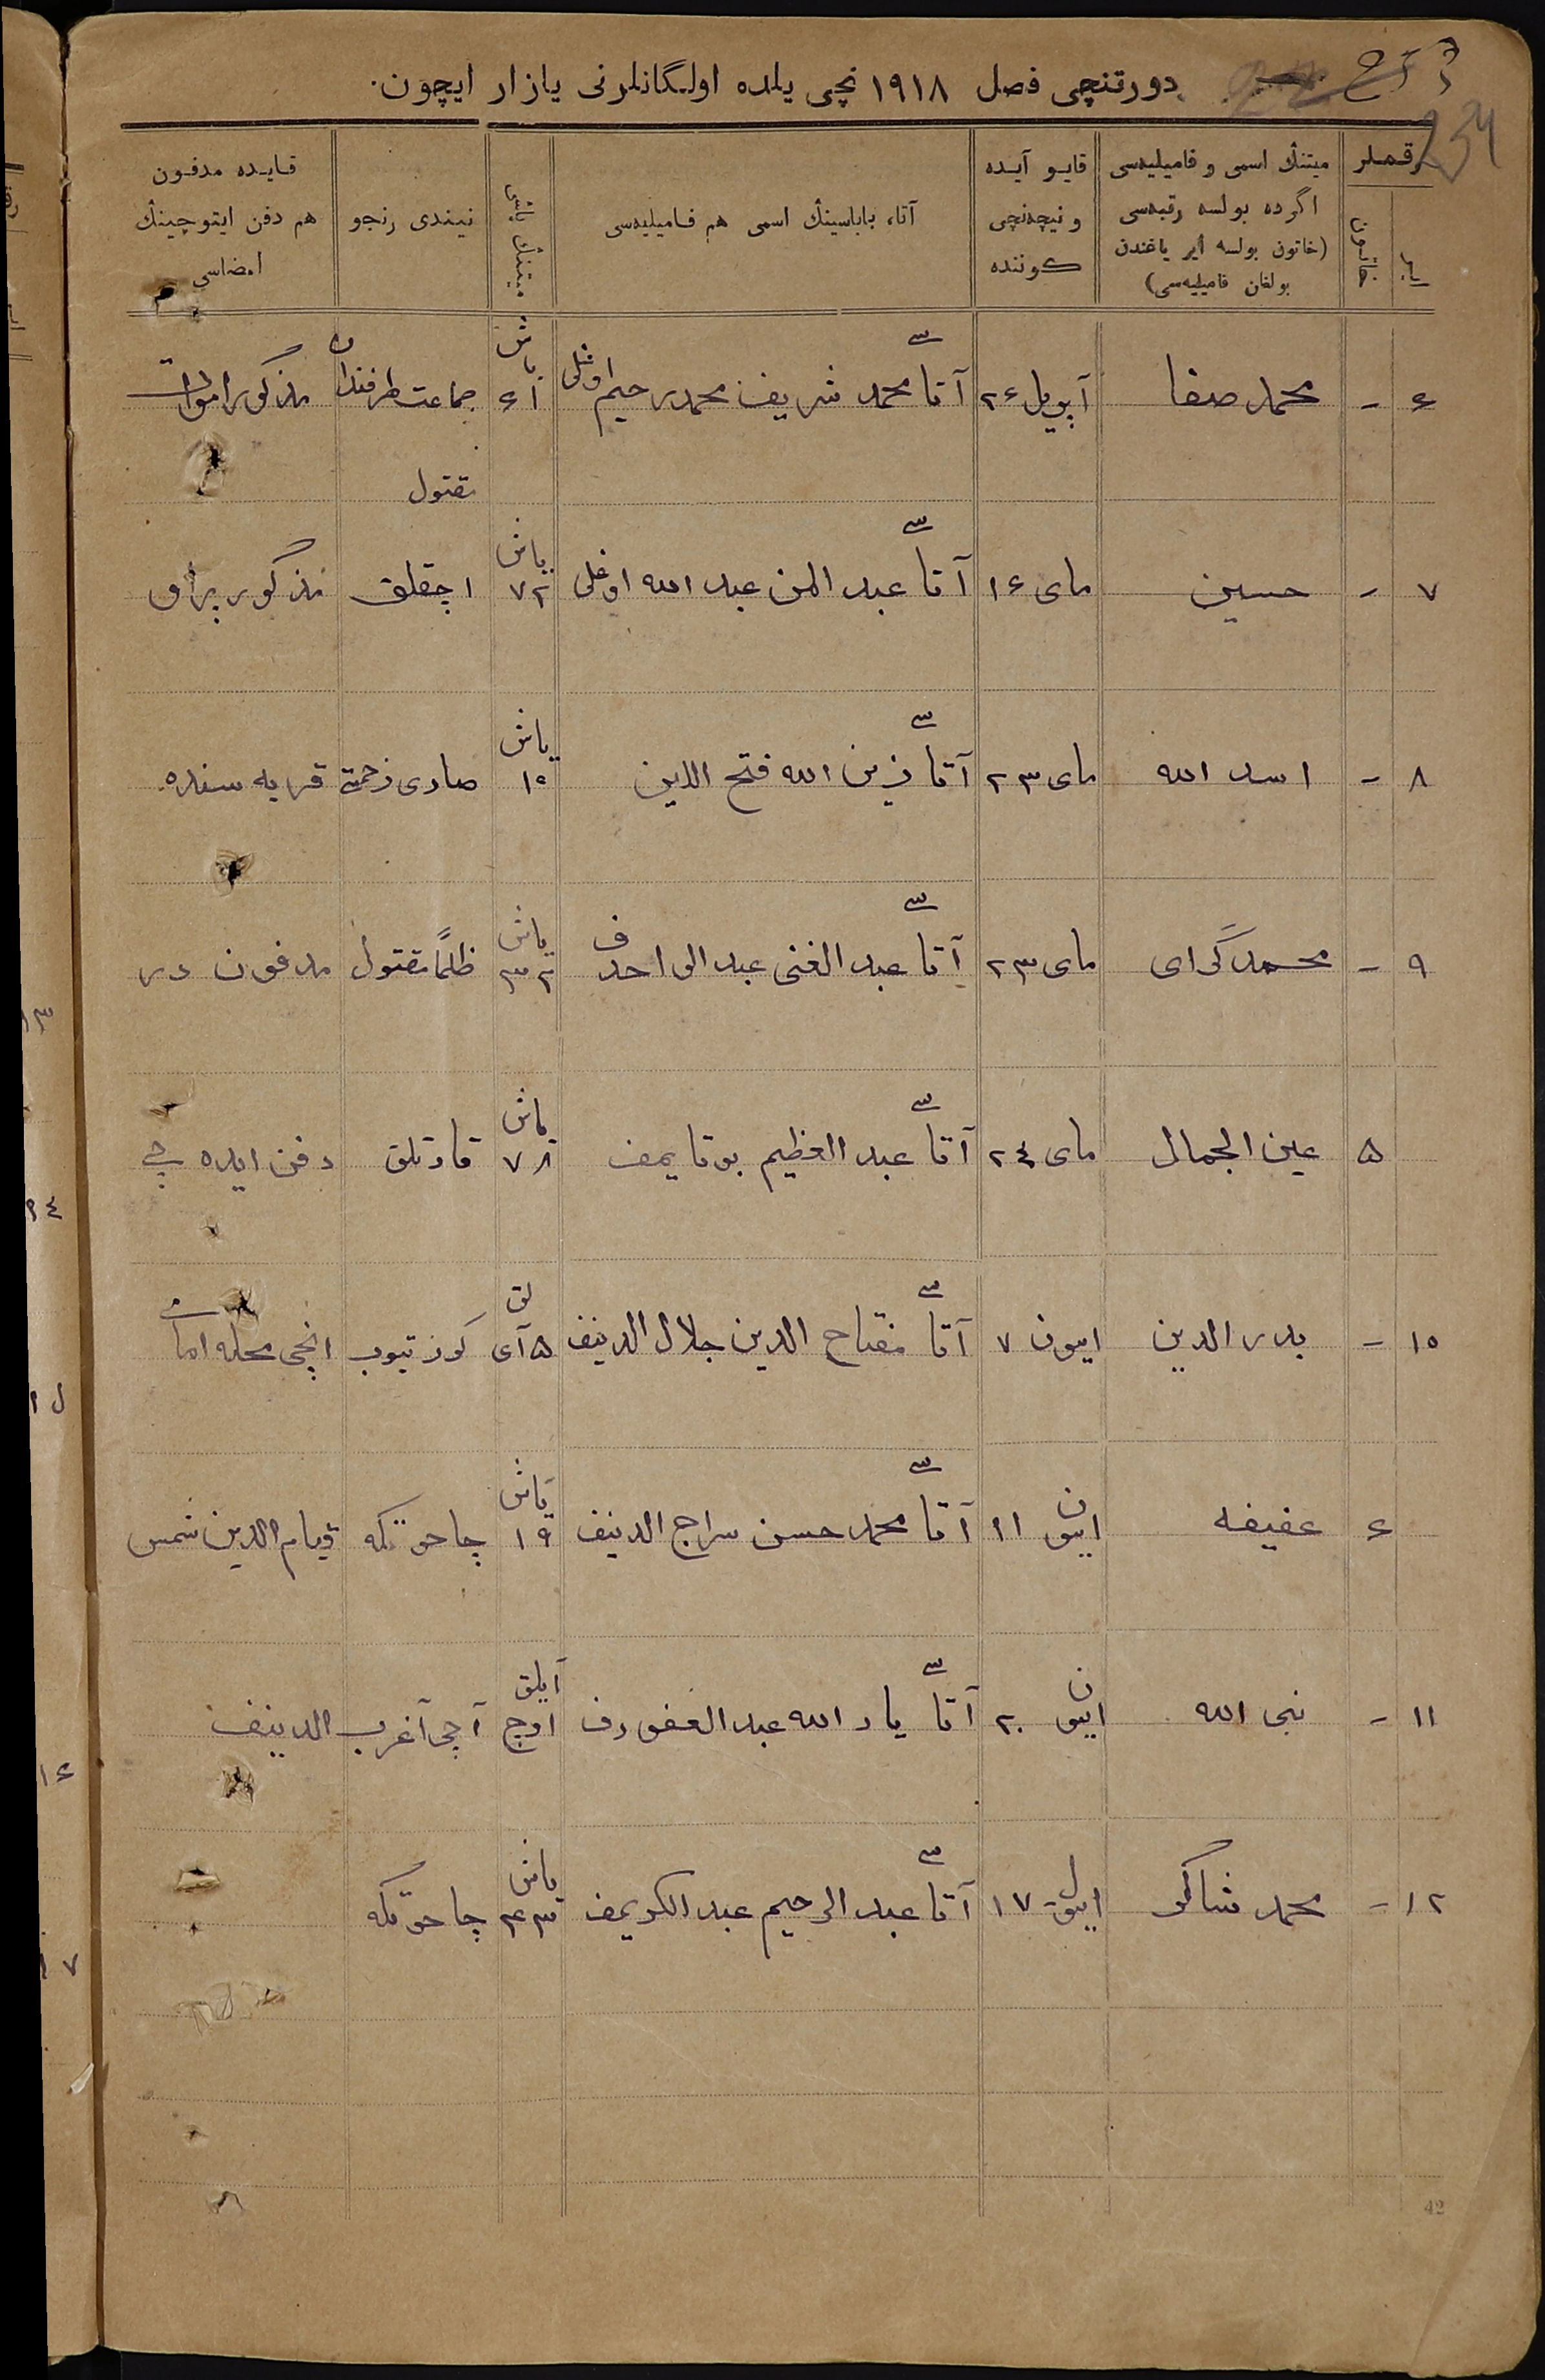 دورتنچی فصل ۱۹۱۸ نچی یلده اولگانلرنی یازار ایچون.
234
رقملر
ایر
خاتون
میتنڭ اسمی و فامیلیه‌سی اگرده بولسه رتبه‌سی (خاتون بولسه ایر یاغندن بولغان فامیلیه‌سی)
قایو آیده و نیچه‌نچی كوننده
آتا، باباسینڭ اسمی هم فامیلیه‌سی
میتنڭ یاشی
نیندی رنجو
قایده مدفون هم دفن ایتوچینڭ امضاسی
۶ - محمد صفا آپریل ۲۶ آتاسی محمد شریف محمدرحیم اوغلی یاش ۶۱ جماعت طرفندان مقتول مذکور امواات
۷ - حسین مای ۱۶ آتاسی عبد المن عبد الله اوغلی یاش ۷۲ اچقلق مذکور براق
۸ - اسد الله مای ۲۳ آتاسی زین الله فتح الدین یاش ۱۵ صاری زحمة قریه سنده
۹ - محمدگرای مای ۲۳ آتاسی عبد الغنی عبد الواحدف یاش ۳۲ ظلمًا مقتول مدفون در
۵ عین الجمال مای ۲۴ آتاسی عبد العظیم بوتایمف یاش ۷۸ قارتلق دفن ایده چی
۱۰ - بدر الدین اییون ۷ آتاسی مفتاح الدین جلال الدینف ۵ آی لق کوز تیوب انچی محله امامی
۶ عفیفه اییون ۱۱ آتاسی محمد حسن سراج الدینف یاش ۱۹ چاحوتکه قیام الدین شمس
۱۱ - نبی الله اییون ۲۰ آتاسی یار الله عبد الغفورف اوچ آیلق آچی آغرب الدینف
۱۲ - محمد شاکر اییول ۱۷ آتاسی عبد الرحیم عبد الکریمف یاش ۴۳ چاحوتکه
42